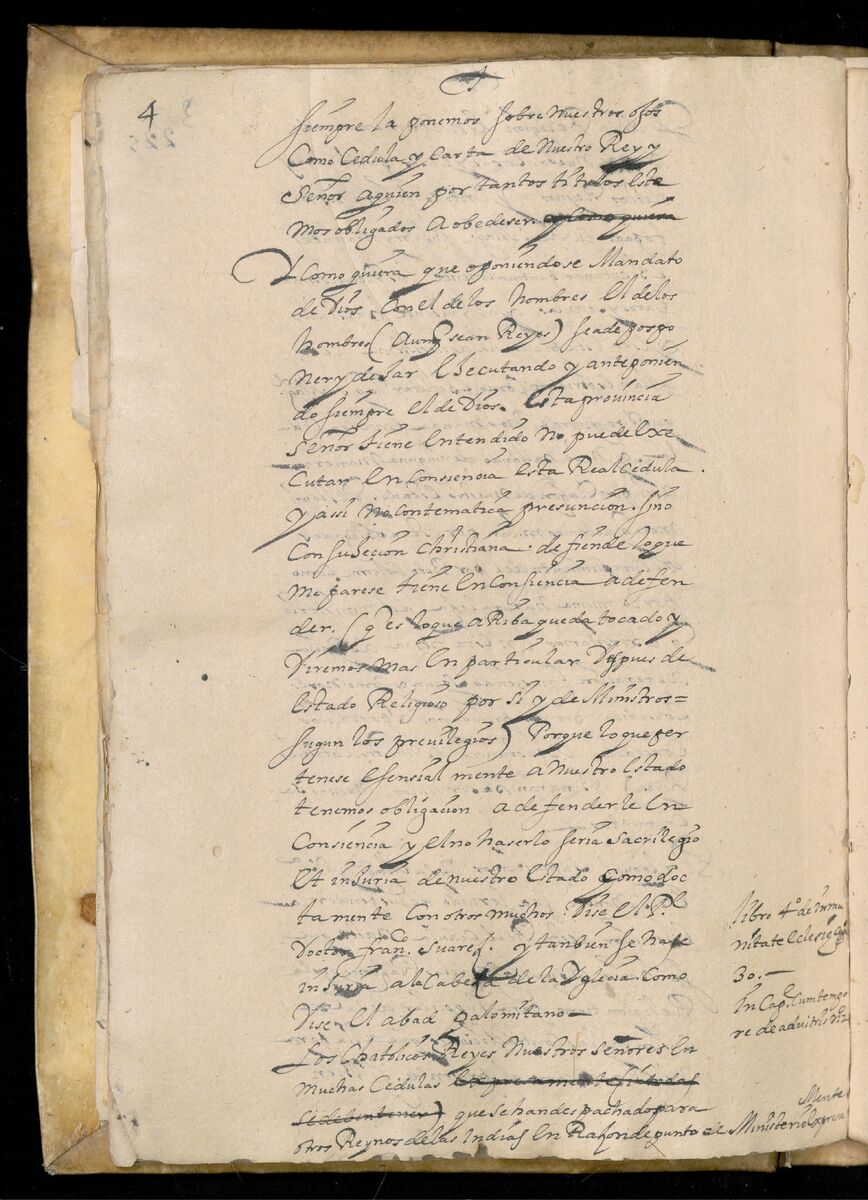 4
siempre la ponemos sobre nuestros ojos
Como Cedula y Carta de Nuestro Rey y
Señor aquien por tantos titulos esta
mos obligados a obedeser. y como quiera
Y Como quiera que oponiendose Mandato
de Dios Con el de los hombres El de los
hombres (Aunq sean Reyes) se a de pospo
ner y desar Esecutando y anteponien
do siempre el de Dios. Esta provincia
señor tiene entendido no puede Exe
cutar En Consiencia esta Real Cedula.
y assi no con tematica presuncion. sino
Con suiecion Christiana. defiende lo que
me parese tiene En Consiencia a defen
der. (q es lo que aRiba queda tocado y
diremos mas En particular despues de
Estado Religioso por si y de Ministros=
sugun los previlegios) Porque lo que per
tenese esensial mente a nuestro Estado
tenemos obligacion a defenderle En
Consiencia y el no haserlo seria sacrilegio
Et injuria de nuestro Estado como doc
tamente con otros muchos. Dise El P.e
Doctor fran.co suares. y tanbien se hase
injuria a la Cabesa de la Yglesia. Como
Dise El abad palomitano—
Los Chatolicos Reyes Nuestros señores En
muchas Cedulas
que se han despachado para
otros Reynos de las Indias En Rason de punto de Ministerio Expresa
Mente
libro 4º de inmu
nitate Eclesie Cap
30.—
In Cap. Cum tempo
re de